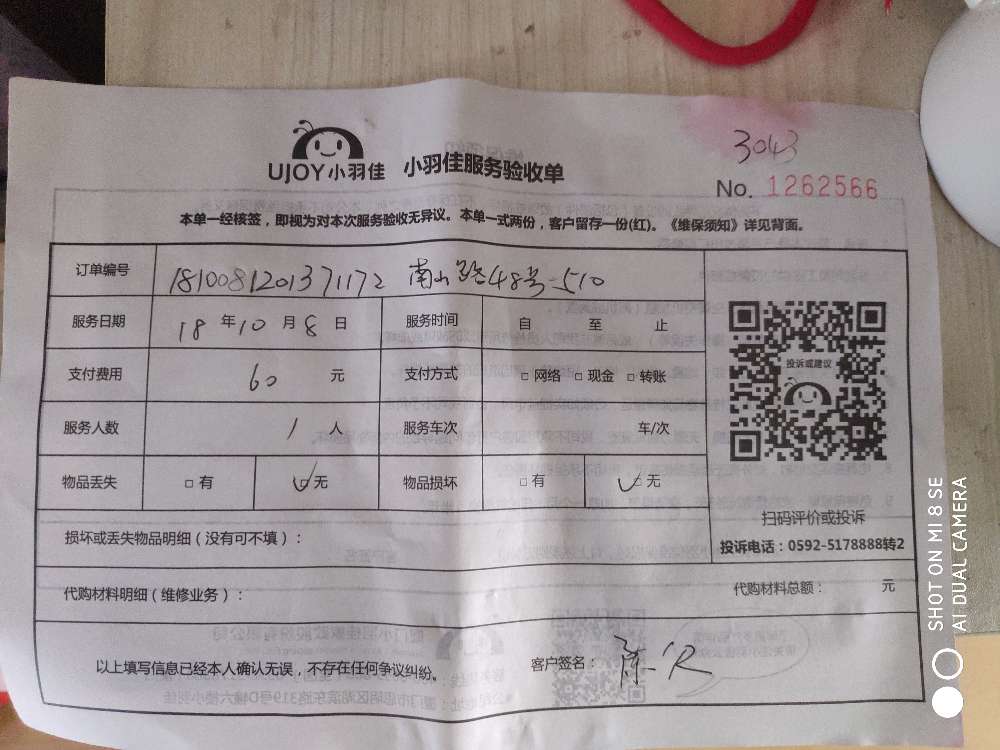 3043
UJOY小羽佳 小羽佳服务验收单
No. 1262566
本单一经核签，即视为对本次服务验收无异议。本单一式两份，客户留存一份(红)。《维保须知》详见背面。
订单编号 1810081201371172 南山路48号-510
服务日期 18年10月8日 服务时间 自 至 止
支付费用 60 元 支付方式 □网络 □现金 □转账
投诉或建议
服务人数 1 人 服务车次 车/次
物品丢失 □有 □无 物品损坏 □有 □无
扫码评价或投诉
损坏或丢失物品明细（没有可不填）：
投诉电话：0592-5178888转2
代购材料明细（维修业务）： 代购材料总额： 元
以上填写信息已经本人确认无误，不存在任何争议纠纷。 客户签名：
SHOT ON MI 8 SE
AI DUAL CAMERA